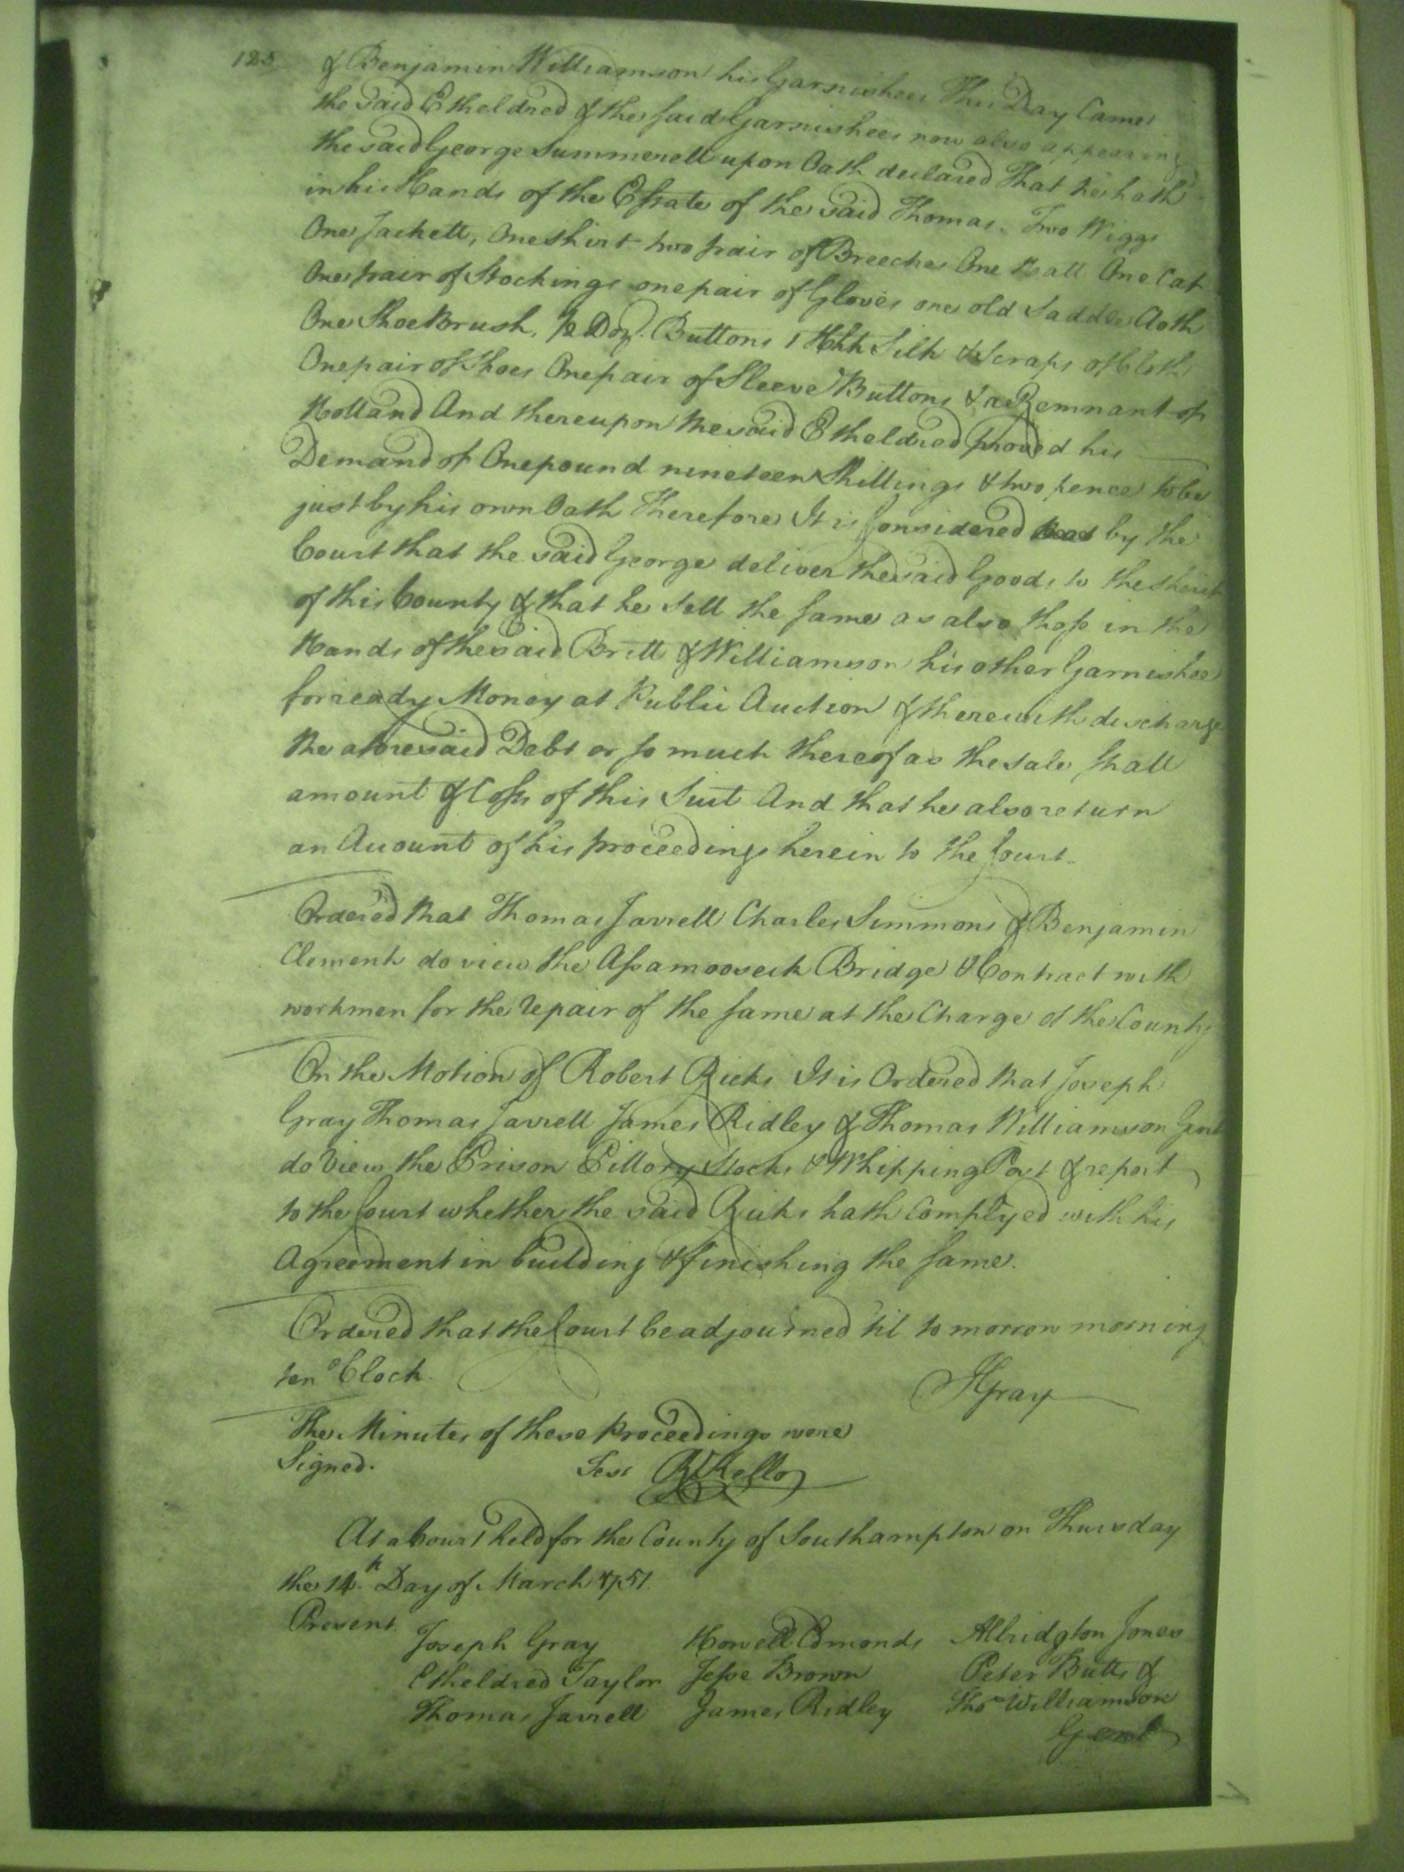 125
& Benjamin Williamson his Garnishees This Day Came
the said Etheldred & the said Garnishees now also appearing
the said George Summerell upon Oath declared That he hath
in his Hands of the Estate of the said Thomas. Two Wiggs
One Jackett, One Shirt two pair of Breeches One Ball One Cat
One pair of Stockings one pair of Gloves one old Saddle Cloth
One Shoe Brush, ½ Doz. Buttons 1 Silk & Scraps of Cloth
One pair of Shoes One pair of Sleeve Buttons & a Remnant of
Holland And thereupon the said Etheldred proved his
Demand of One pound nineteen Shillings & two pence to be
just by his own Oath Therefore It is Considered by the
Court that the said George deliver the said Goods to the Sherif
of this County & that he sell the same as also those in the
Hands of the said Britt & Williamson his other Garnishee
for ready Money at Publii Auction & therewith discharge
the aforesaid Debt or so much thereof as the Sale shall
amount & Costs of this Suit And that he also return
an Account of his proceedings herein to the Court
Ordered that Thomas Jarrell Charles Simmons & Benjamin
Clements do view the Assamooseck Bridge & Contract with
workmen for the repair of the same at the Charge of the County
On the Motion of Robert Ricks It is Ordered that Joseph
Gray Thomas Jarrell James Ridley & Thomas Williamson Gent
do View the Prison Pillory Stocks & Whipping Post & report
to the Court whether the said Ricks hath Complyed with his
Agreement in building & finishing the same.
Ordered that the Court be adjourned 'til to morrow morning
ten o'Clock.
JGray
The Minutes of these proceedings were
Signed.
Test RKello
At a Court held for the County of Southampton on Thursday
the 14th Day of March 1751
Present
Joseph Gray Howell Edmonds Albridgton Jones
Etheldred Taylor Jesse Brown Peter Butts &
Thomas Jarrell James Ridley Thos Williamson
Gent